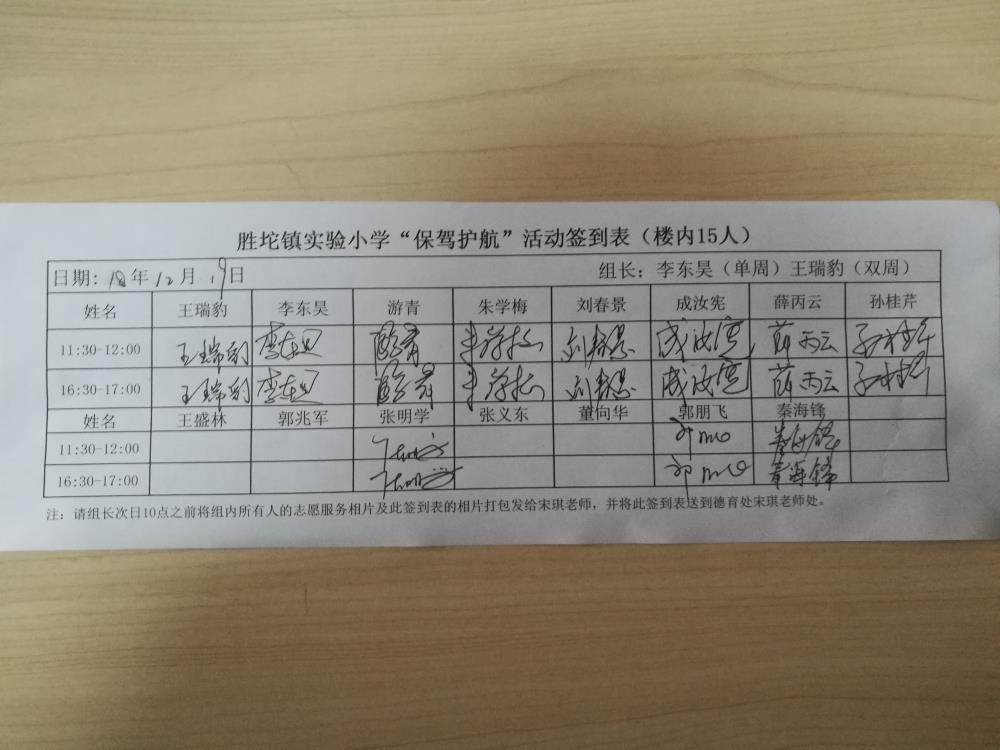 胜坨镇实验小学“保驾护航”活动签到表（楼内15人）
日期: 18年12月19日 组长：李东昊（单周）王瑞豹（双周）
姓名 王瑞豹 李东昊 游青 朱学梅 刘春景 成汝宪 薛丙云 孙桂芹
11:30-12:00 王瑞豹 李东昊 游青 朱学梅 刘春景 成汝宪 薛丙云 孙桂芹
16:30-17:00 王瑞豹 李东昊 游青 朱学梅 刘春景 成汝宪 薛丙云 孙桂芹
姓名 王盛林 郭兆军 张明学 张义东 董向华 郭朋飞 秦海锋
11:30-12:00 张明学 秦海锋
16:30-17:00 张明学 秦海锋
注：请组长次日10点之前将组内所有人的志愿服务相片及此签到表的相片打包发给宋琪老师，并将此签到表送到德育处宋琪老师处。